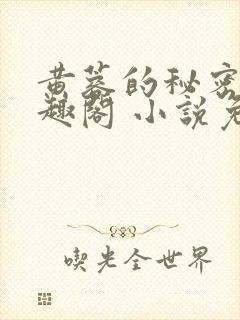 黄蓉的秘密
趣閣 小說免
喫光全世界